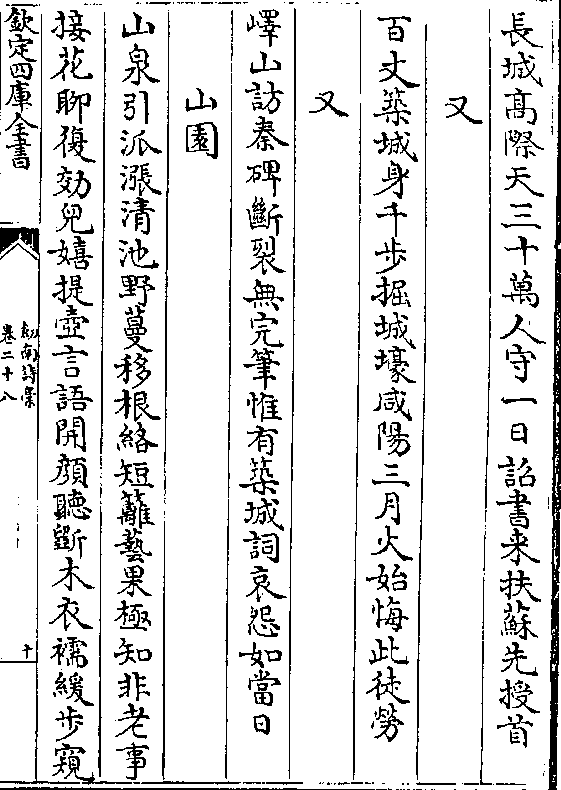 長城高際天三十萬人守一日詔書来扶蘇先授首
又
百丈築城身千步掘城壕咸陽三月火始悔此徒勞
又
嶧山訪秦碑斷裂無完筆惟有築城詞哀怨如當日
山園
山泉引派漲清池野蔓移根絡短籬藝果極知非老事
接花聊復効兒嬉提壺言語開顔聽斲木衣襦緩步窺
欽定四庫全書
劍南詩槀
卷二十八
十